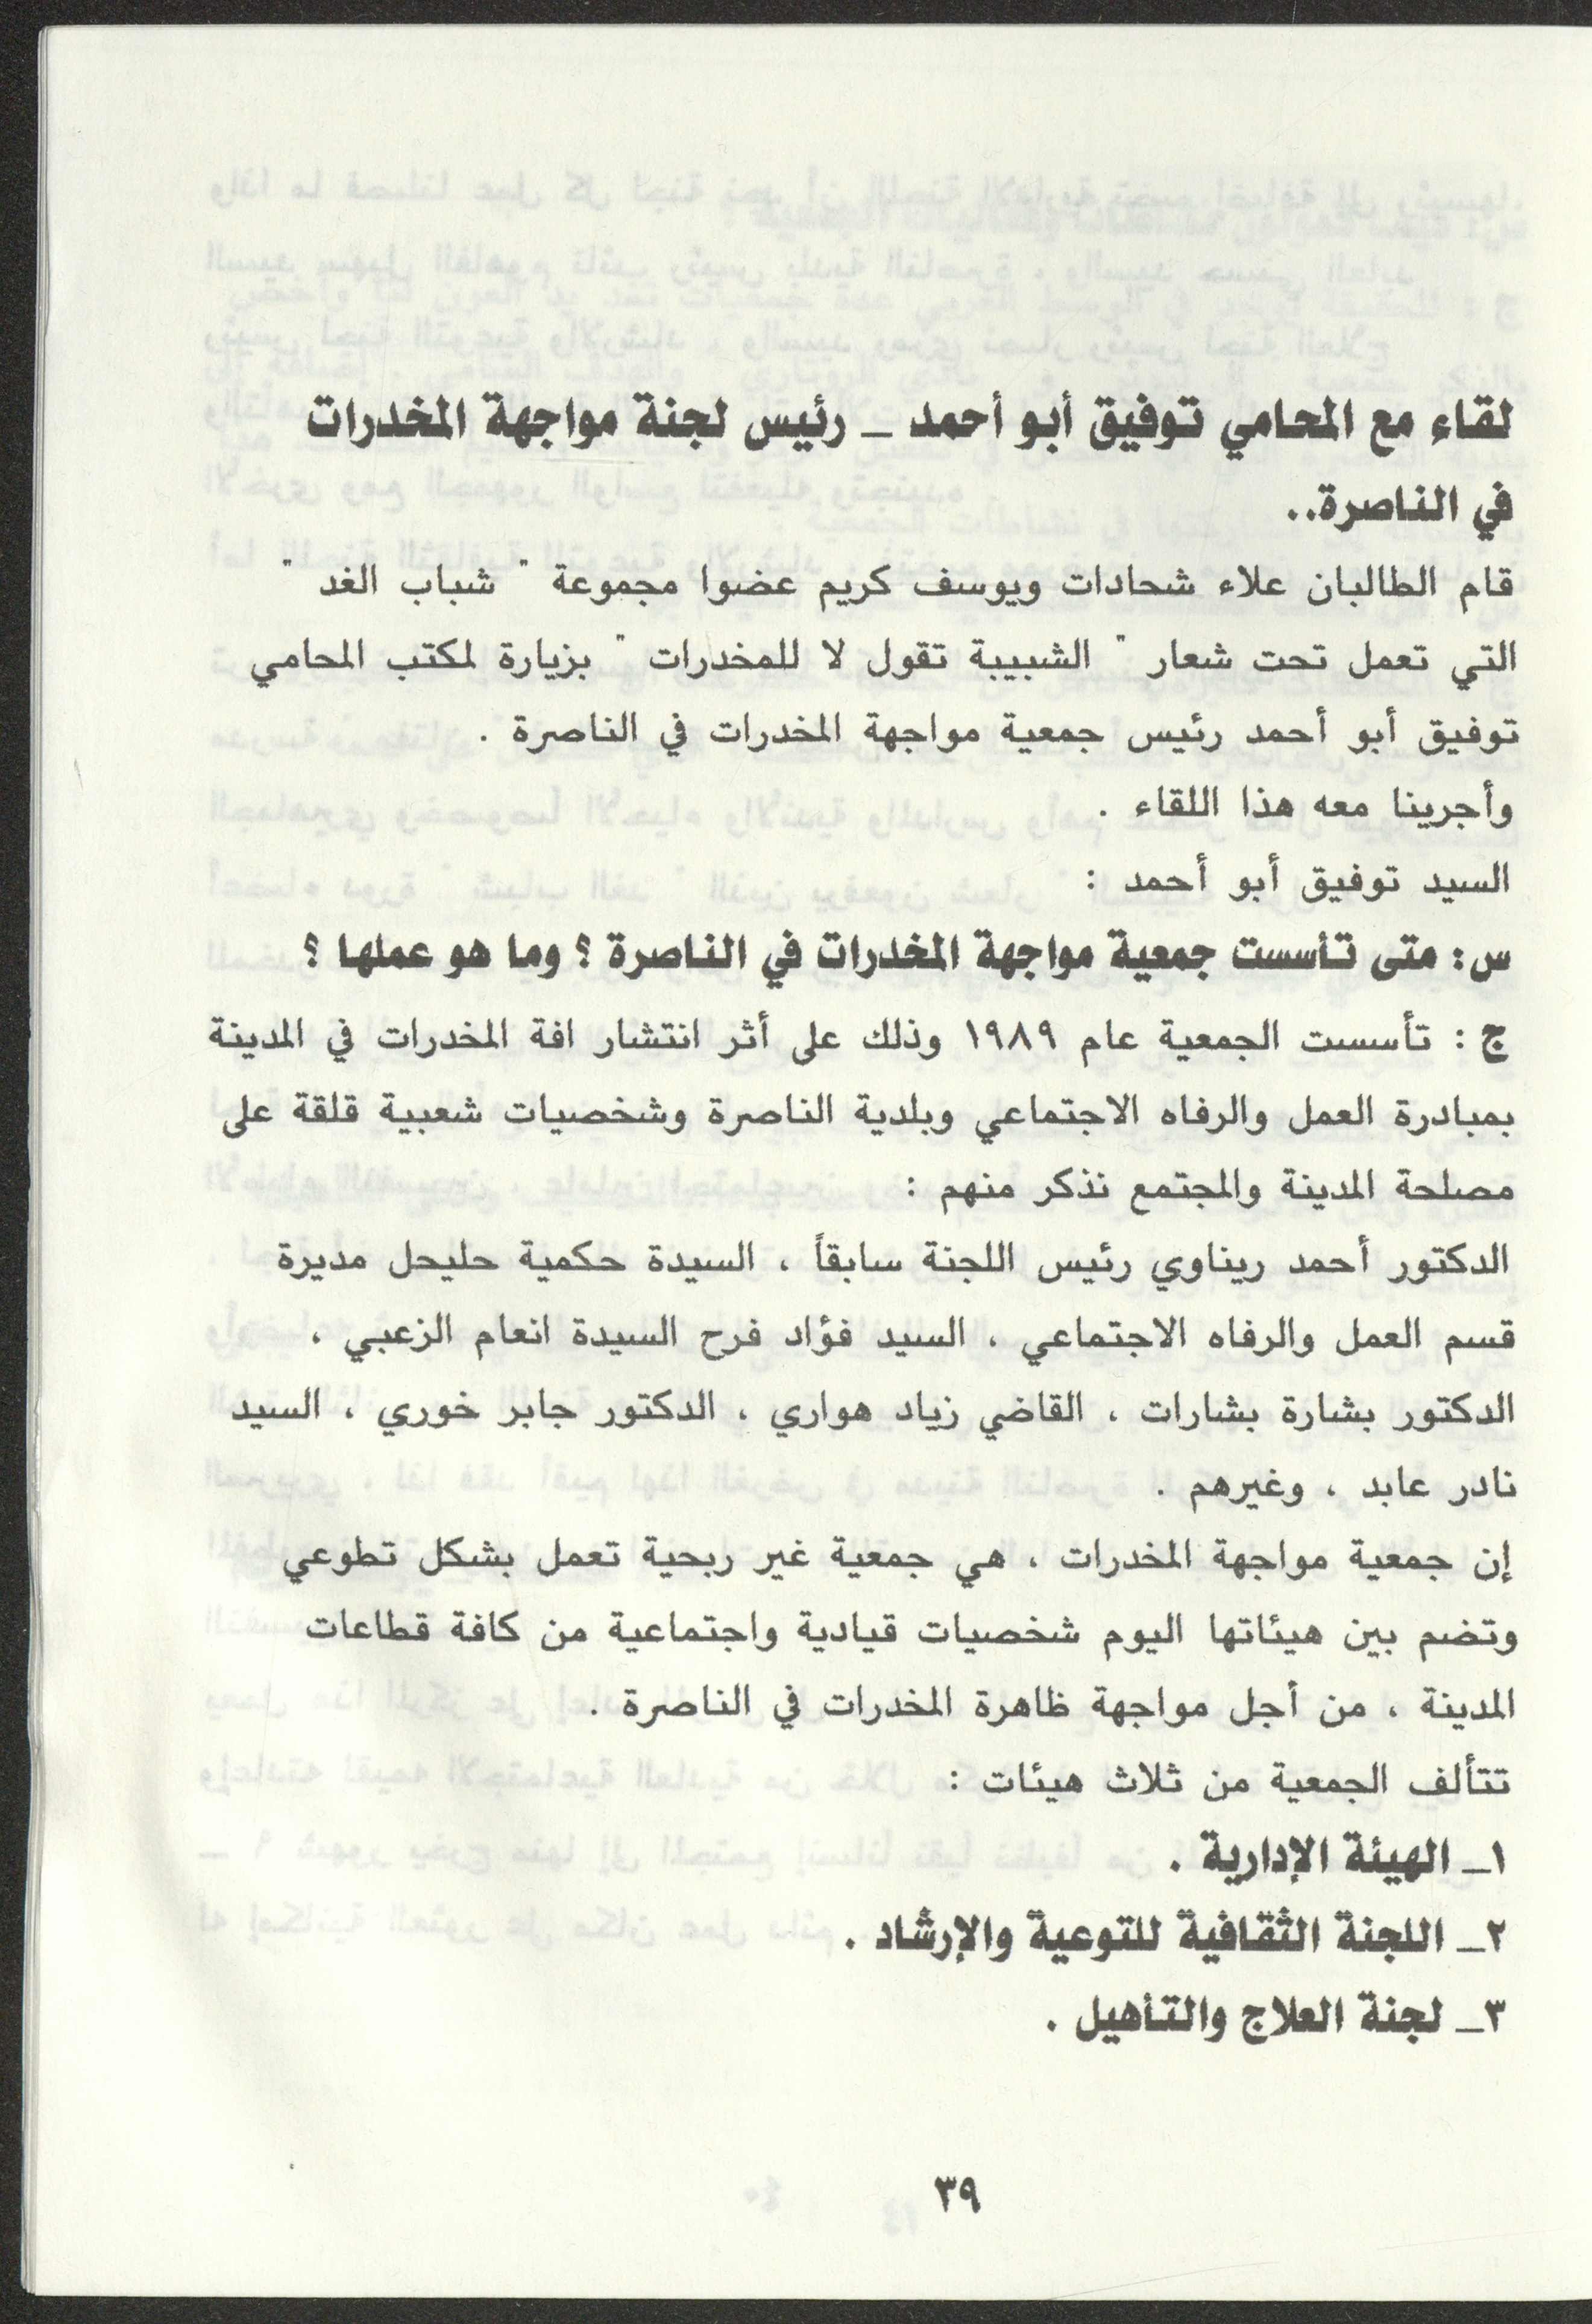 لقاء مع المحامي توفيق أبو أحمد _ رئيس لجنة مواجهة المخدرات
في الناصرة..
قام الطالبان علاء شحادات ويوسف كريم عضوا مجموعة " شباب الغد "
التي تعمل تحت شعار " الشبيبة تقول لا للمخدرات " بزيارة لمكتب المحامي
توفيق أبو أحمد رئيس جمعية مواجهة المخدرات في الناصرة .
وأجرينا معه هذا اللقاء .
السيد توفيق أبو أحمد :
س: متى تأسست جمعية مواجهة المخدرات في الناصرة ؟ وما هو عملها ؟
ج : تأسست الجمعية عام ١٩٨٩ وذلك على أثر انتشار افة المخدرات في المدينة
بمبادرة العمل والرفاه الاجتماعي وبلدية الناصرة وشخصيات شعبية قلقة على
مصلحة المدينة والمجتمع نذكر منهم :
الدكتور أحمد ريناوي رئيس اللجنة سابقاً ، السيدة حكمية حليحل مديرة
قسم العمل والرفاه الاجتماعي ، السيد فؤاد فرح السيدة انعام الزعبي ،
الدكتور بشارة بشارات ، القاضي زياد هواري ، الدكتور جابر خوري ، السيد
نادر عابد ، وغيرهم .
إن جمعية مواجهة المخدرات ، هي جمعية غير ربحية تعمل بشكل تطوعي
وتضم بين هيئاتها اليوم شخصيات قيادية واجتماعية من كافة قطاعات
المدينة ، من أجل مواجهة ظاهرة المخدرات في الناصرة .
تتألف الجمعية من ثلاث هيئات :
١_ الهيئة الإدارية .
٢_ اللجنة الثقافية للتوعية والإرشاد .
٣_ لجنة العلاج والتأهيل .
٣٩